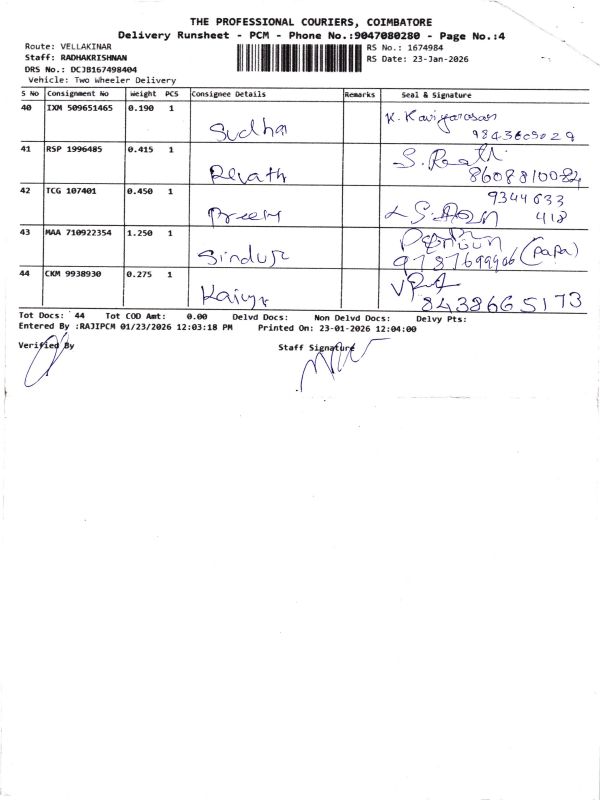 THE PROFESSIONAL COURIERS, COIMBATORE
Delivery Runsheet - PCM - Phone No.:9047080280 - Page No.:4
Route: VELLAKINAR
RS No.: 1674984
Staff: RADHAKRISHNAN
RS Date: 23-Jan-2026
DRS No.: DCJB167498404
Vehicle: Two Wheeler Delivery
S No Consignment No Weight PCS Consignee Details Remarks Seal & Signature
40 IXM 509651465 0.190 1 Sudha K. Kaviyarasan
41 RSP 1996485 0.415 1 Revath
8608810084
42 TCG 107401 0.450 1 Preeti
9344633
418
43 MAA 710922354 1.250 1 Sinduja
9787699906 (PAPA)
44 CKM 9938930 0.275 1
8438665173
Tot Docs: 44 Tot COD Amt: 0.00 Delvd Docs: Non Delvd Docs: Delvy Pts:
Entered By :RAJIPCM 01/23/2026 12:03:18 PM Printed On: 23-01-2026 12:04:00
Verified By Staff Signature